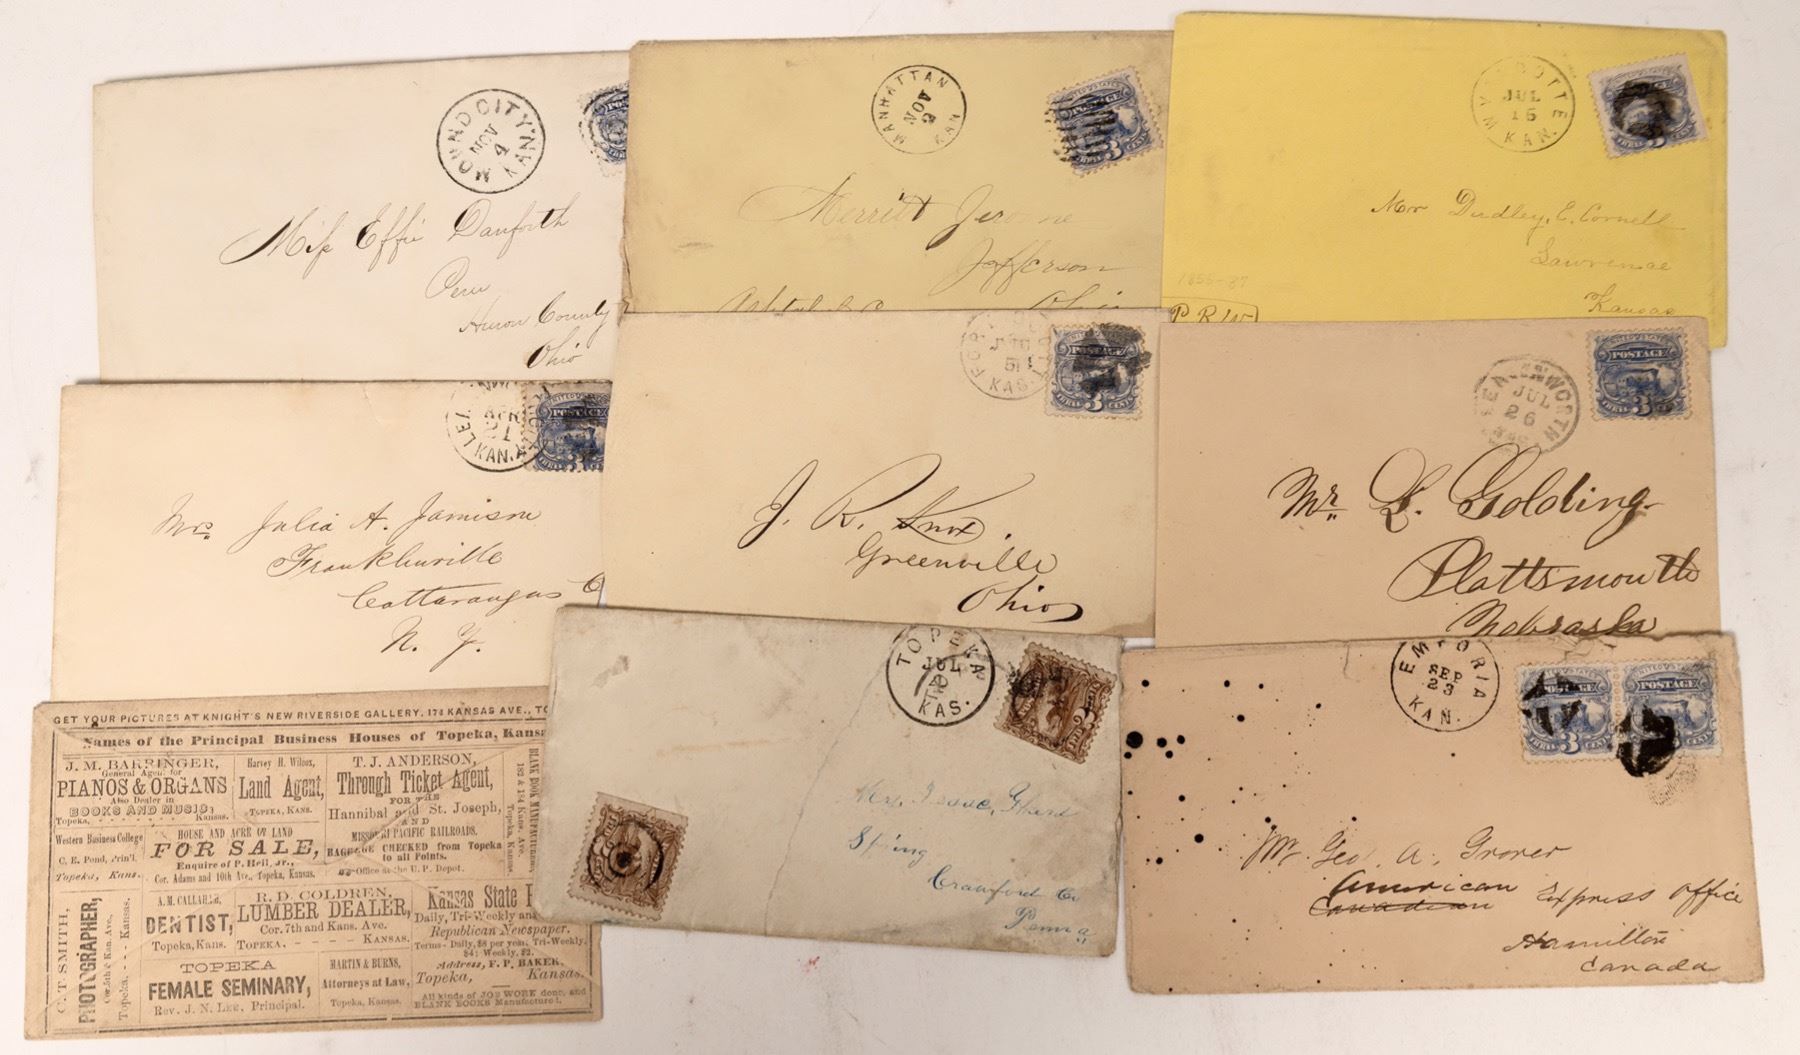 MOUND CITY KAN
NOV
4
Miss Effie Danforth
Peru
Huron County
Ohio
MANHATTAN
NOV
2
KAN
POSTAGE
3
Merritt Jerome
Jefferson
Ohio
WYANDOTTE
JUL
15
KAN.
Mr Dudley. E. Cornell
Lawrence
Kansas
1855-87
P R W
APR
21
KAN.
UNITED STATES
POSTAGE
3
Mrs Julia A. Jamison
Franklinville
Cattaraugus C
N. Y.
KAS
POSTAGE
THREE 3 CENTS
J. R. Knox
Greenville
Ohio
LEAVENWORTH
JUL
26
KAS
POSTAGE
THREE 3 CENTS
Mr. L. Golding
Plattsmouth
Nebraska
TOPEKA
JUL
KAS.
Mrs. Isaac, Ghard
Spring
Crawford Co
Penna
EMPORIA
SEP
23
KAN.
POSTAGE
POSTAGE
3
Mr. Geo. A. Grover
American
Canadian Express Office
Hamilton
Canada
GET YOUR PICTURES AT KNIGHT'S NEW RIVERSIDE GALLERY, 174 KANSAS AVE., TO
Names of the Principal Business Houses of Topeka, Kansa
J. M. BARRINGER,
General Agent for
PIANOS & ORGANS
Also Dealer in
BOOKS AND MUSIC;
Topeka, Kansas.
Harvey H. Wilcox,
Land Agent,
TOPEKA, KANS.
T. J. ANDERSON,
Through Ticket Agent,
FOR THE
Hannibal and St. Joseph,
AND
MISSOURI PACIFIC RAILROADS.
BAGGAGE CHECKED from Topeka
to all Points.
Office at the U. P. Depot.
BLANK BOOK MANUFACTURERS,
182 & 184 Kans. Ave.
Topeka, Kansas
Western Business College
C. E. Pond, Prin'l.
Topeka, Kans.
HOUSE AND ACRE OF LAND
FOR SALE,
Enquire of P. Heil, Jr.,
Cor. Adams and 10th Ave., Topeka, Kansas.
C. T. SMITH,
PHOTOGRAPHER,
Cor. 6th & Kan. Ave.
Topeka, - - - Kansas.
A.M. CALLAHAM,
DENTIST,
Topeka, Kans.
R. D. COLDREN,
LUMBER DEALER,
Cor. 7th and Kans. Ave.
TOPEKA, - - - - KANSAS.
Kansas State R
Daily, Tri-Weekly an
Republican Newspaper.
Terms - Daily, $8 per year; Tri-Weekly.
$4; Weekly, $2.
Address, F. P. BAKER,
Topeka, Kansas.
All kinds of JOB WORK done, and
BLANK BOOKS Manufactured.
TOPEKA
FEMALE SEMINARY,
Rev. J. N. LEE, Principal.
MARTIN & BURNS,
Attorneys at Law,
Topeka, Kansas.